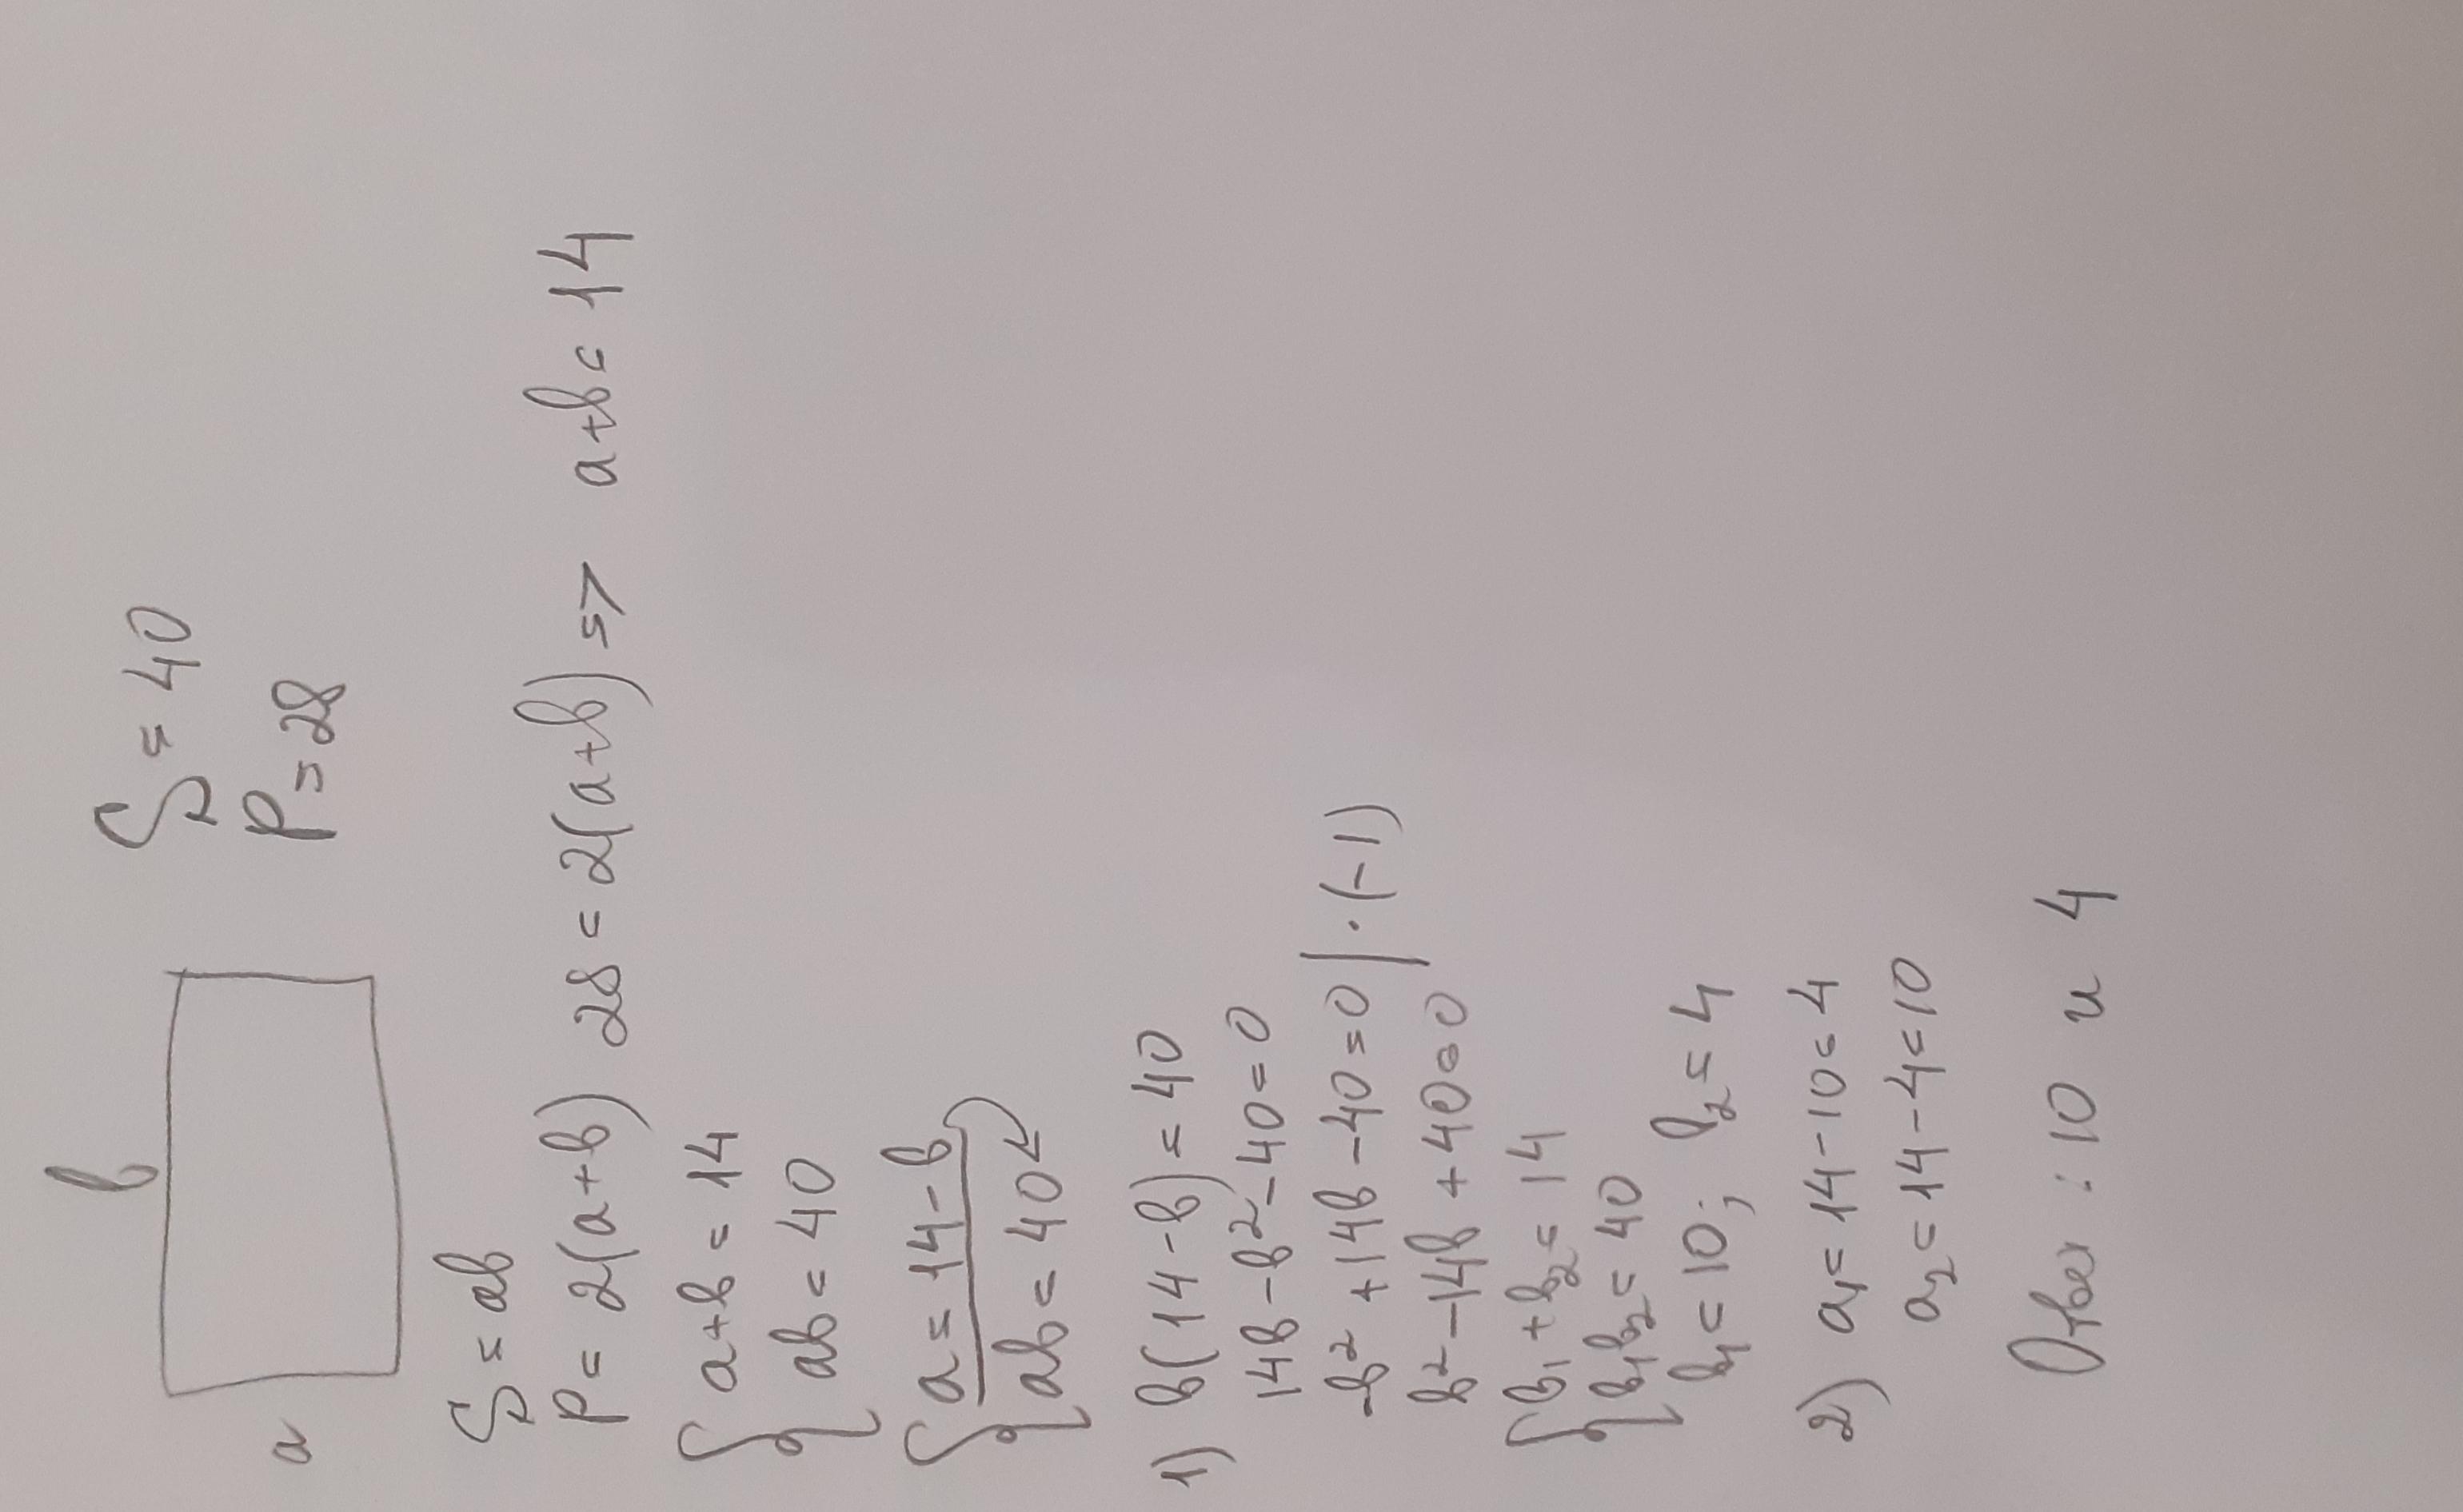 b
a
S = 40
P = 28
S = ab
P = 2(a+b) 28 = 2(a+b) => a+b = 14
{ a+b = 14
ab = 40
{ a = 14-b
ab = 40
1) b(14-b) = 40
14b - b² - 40 = 0
-b² + 14b - 40 = 0 | · (-1)
b² - 14b + 40 = 0
{ b₁ + b₂ = 14
b₁b₂ = 40
b₁ = 10; b₂ = 4
2) a₁ = 14-10 = 4
a₂ = 14-4 = 10
Ответ: 10 и 4